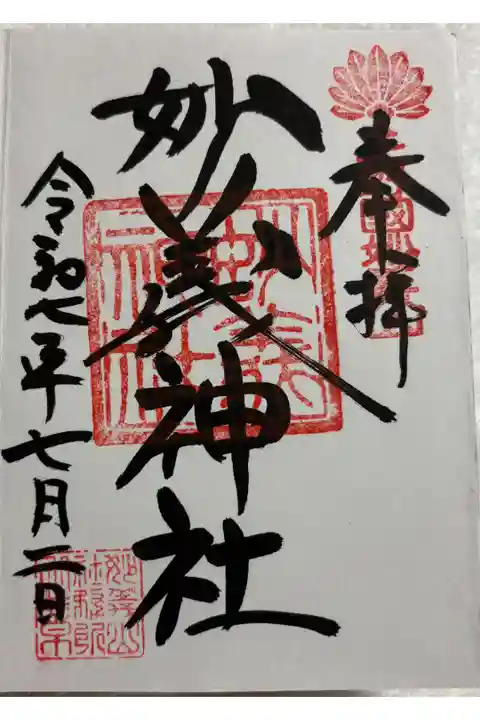 奉拝
妙義神社
令和七年七月二日